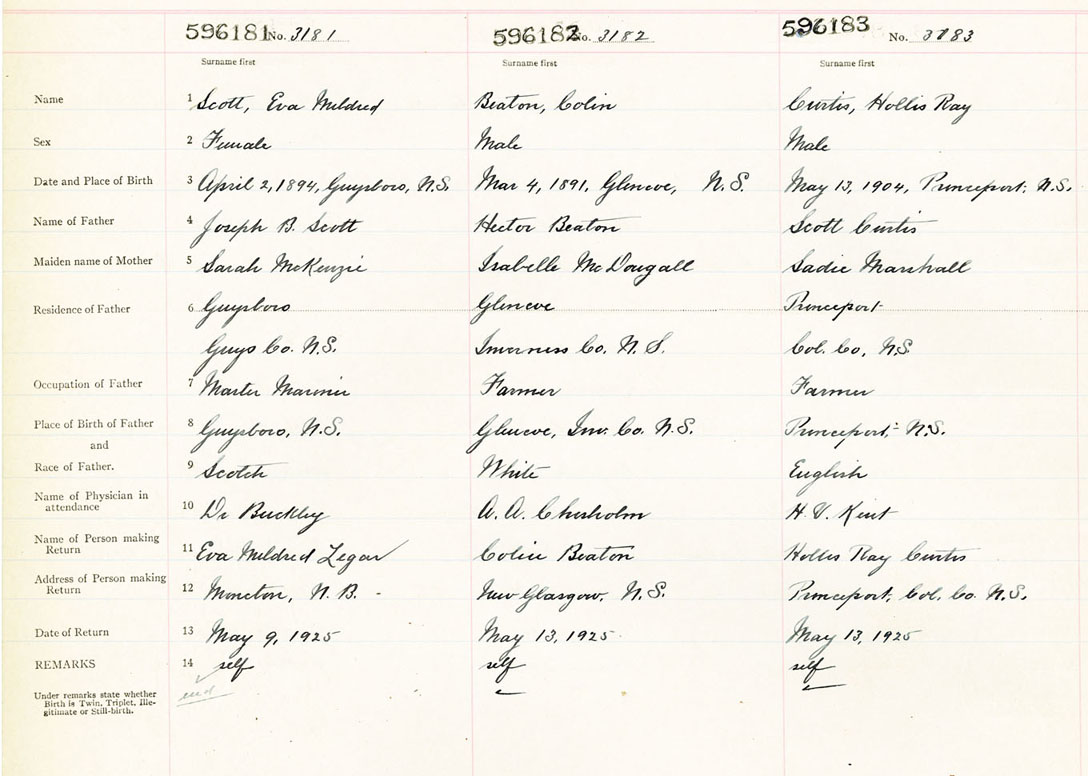 596181 No. 3181 596182 No. 3182 596183 No. 3183
Surname first Surname first Surname first
Name 1 Scott, Eva Mildred Beaton, Colin Curtis, Hollis Ray
Sex 2 Female Male Male
Date and Place of Birth 3 April 2, 1894, Guysboro, N.S. Mar 4, 1891, Glencoe, N.S. May 13, 1904, Princeport, N.S.
Name of Father 4 Joseph B. Scott Hector Beaton Scott Curtis
Maiden name of Mother 5 Sarah McKenzie Isabelle McDougall Sadie Marshall
Residence of Father 6 Guysboro Glencoe Princeport
Guys Co. N.S. Inverness Co. N.S. Col. Co, N.S.
Occupation of Father 7 Master Mariner Farmer Farmer
Place of Birth of Father 8 Guysboro, N.S. Glencoe, Inv. Co. N.S. Princeport, N.S.
and
Race of Father. 9 Scotch White English
Name of Physician in
attendance 10 Dr Buckley A. A. Chisholm H. V. Kent
Name of Person making
Return 11 Eva Mildred Legar Colin Beaton Hollis Ray Curtis
Address of Person making
Return 12 Moncton, N.B. New Glasgow, N.S. Princeport, Col. Co. N.S.
Date of Return 13 May 9, 1925 May 13, 1925 May 13, 1925
REMARKS 14 self self self
Under remarks state whether
Birth is Twin, Triplet, Ille-
gitimate or Still-birth.